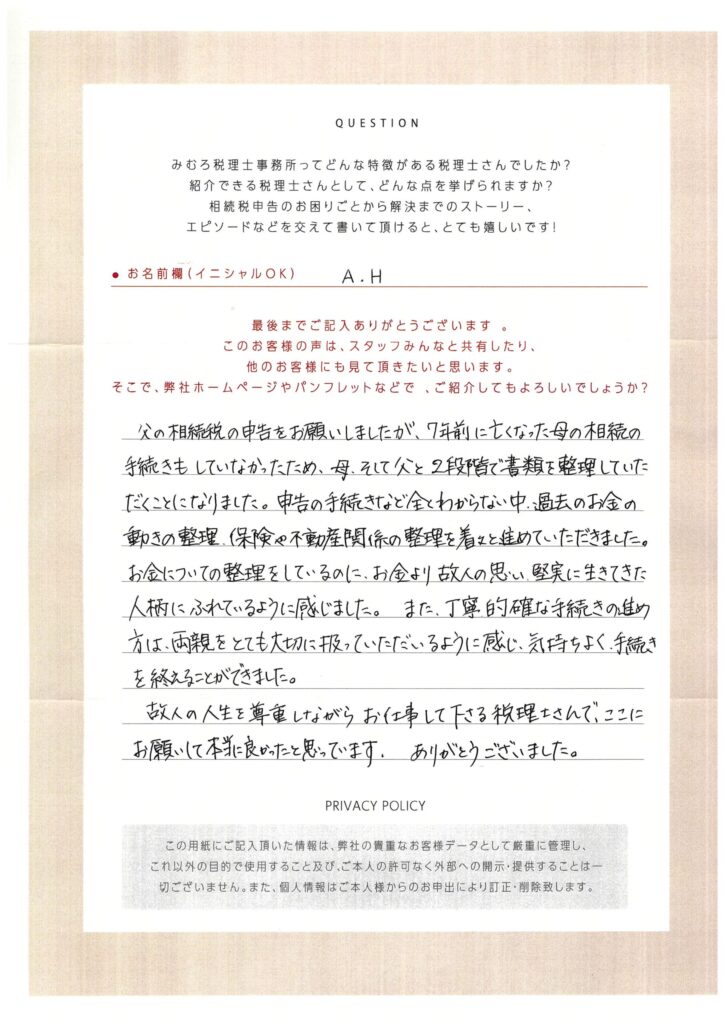 QUESTION
みむろ税理士事務所ってどんな特徴がある税理士さんでしたか?
紹介できる税理士さんとして、どんな点を挙げられますか?
相続税申告のお困りごとから解決までのストーリー、
エピソードなどを交えて書いて頂けると、とても嬉しいです!
● お名前欄(イニシャルOK) A.H
最後までご記入ありがとうございます 。
このお客様の声は、スタッフみんなと共有したり、
他のお客様にも見て頂きたいと思います。
そこで、弊社ホームページやパンフレットなどで 、ご紹介してもよろしいでしょうか?
父の相続税の申告をお願いしましたが、7年前に亡くなった母の相続の
手続きもしていなかったため、母、そして父と2段階で書類を整理していた
だくことになりました。申告の手続きなど全くわからない中、過去のお金の
動きの整理、保険や不動産関係の整理を着々と進めていただきました。
お金についての整理をしているのに、お金より故人の思い、堅実に生きてきた
人柄にふれているように感じました。 また、丁寧的確な手続きの進め
方は、両親をとても大切に扱っていただいるように感じ、気持ちよく、手続き
を終えることができました。
故人の人生を尊重しながらお仕事して下さる税理士さんで、ここに
お願いして本当に良かったと思っています. ありがとうございました。
PRIVACY POLICY
この用紙にご記入頂いた情報は、弊社の貴重なお客様データとして厳重に管理し、
これ以外の目的で使用すること及び、ご本人の許可なく外部への開示・提供することは一
切ございません。また、個人情報はご本人様からのお申出により訂正・削除致します。